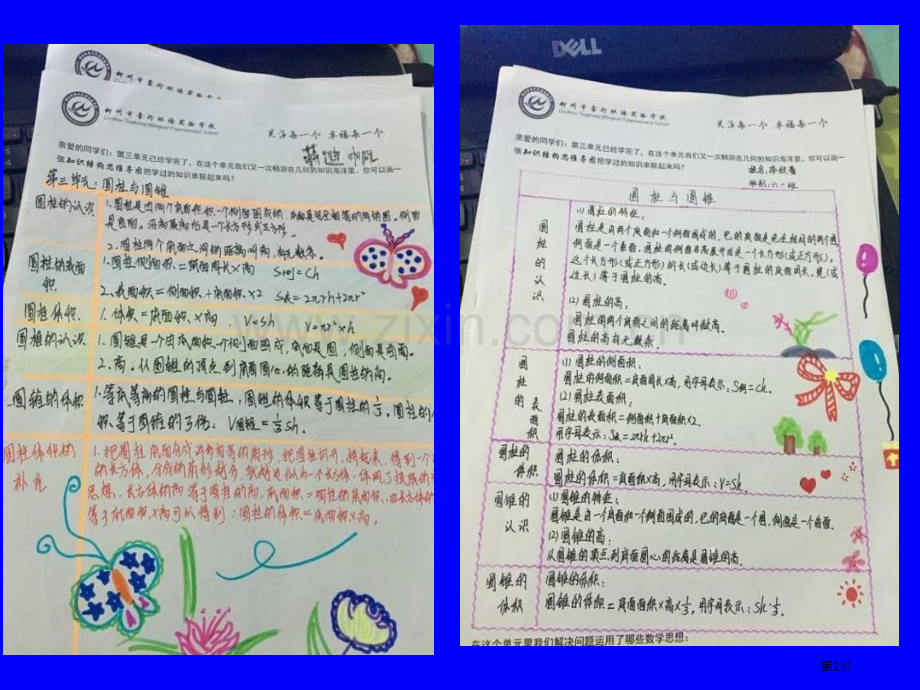 关注每一个 幸福每一个
亲爱的同学们：第三单元已经学完了，在这个单元我们又一次畅游在几何的知识海洋里，你可以画一
张知识结构思维导图把学过的知识串联起来吗？
第三单元：圆柱与圆锥
圆柱的认识
1.圆柱是由两个底面和一个侧面围成的，底面是完全相等的两个圆。侧面
是曲面，沿高展开后是一个长方形或正方形。
2.圆柱两个底面之间的距离叫高，有无数条。
圆柱的表面积
1.圆柱侧面积=底面周长×高 S侧=Ch
2.表面积=侧面积+底面积×2 S表=2πrh+2πr²
圆柱体积
1.体积=底面积×高 V=Sh V=πr²×h
圆锥的认识
1.圆锥是一个由底面和一个侧面围成，底面是圆，侧面是曲面。
2.高。从圆锥的顶点到底面圆心的距离是圆锥的高。
圆锥的体积
1.等底等高的圆柱与圆锥，圆锥的体积等于圆柱的1/3，圆柱的体
积等于圆锥的3倍：V圆锥=1/3Sh。
圆柱体积的补充
1.把圆柱底面分成许多相等的扇形，把圆柱切开，拼起来，得到一个
的长方体，分成的扇形越多，
思想，长方体的高等于圆柱的高，底面积=圆柱的底面积，由长方体的
等于底面积×高可以得到：圆柱的体积=底面积×高。
DELL
关注每一个 幸福每一个
亲爱的同学们：第三单元已经学完了，在这个单元我们又一次畅游在几何的知识海洋里，你可以画一
张知识结构思维导图把学过的知识串联起来吗？
班别：六一班
圆柱与圆锥
圆柱的认识
(1)圆柱的特征：
圆柱是由两个底面和一个侧面围成的，它的底面是完全相同的两个圆
侧面是一个曲面，圆柱的侧面沿高展开后是一个长方形(或正方形)，
这个长方形(或正方形)的长(或边长)等于圆柱的底面周长，宽(或
边长)等于圆柱的高。
(2)圆柱的高：
圆柱的两个底面之间的距离叫做高。
圆柱的高有无数条。
圆柱的表面积
(1)圆柱的侧面积：
圆柱的侧面积=底面周长×高，用字母表示：S侧=ch。
(2)圆柱的表面积：
圆柱的表面积=侧面积+底面积×2。
用字母表示：S表=2πrh+2πr²。
圆柱的体积
圆柱的体积：
圆柱的体积=底面积×高，用字母表示：V=Sh。
圆锥的认识
(1)圆锥的特征：
圆锥是由一个底面和一个侧面围成的，它的底面是一个圆，侧面是一个曲面。
(2)圆锥的高：
从圆锥的顶点到底面圆心的距离是圆锥的高。
圆锥的体积
圆锥的体积：
圆锥的体积=底面面积×高×1/3，用字母表示：Sh·1/3。
在这个单元里我们解决问题运用了哪些数学思想：
www.zixin.com.cn
第2页